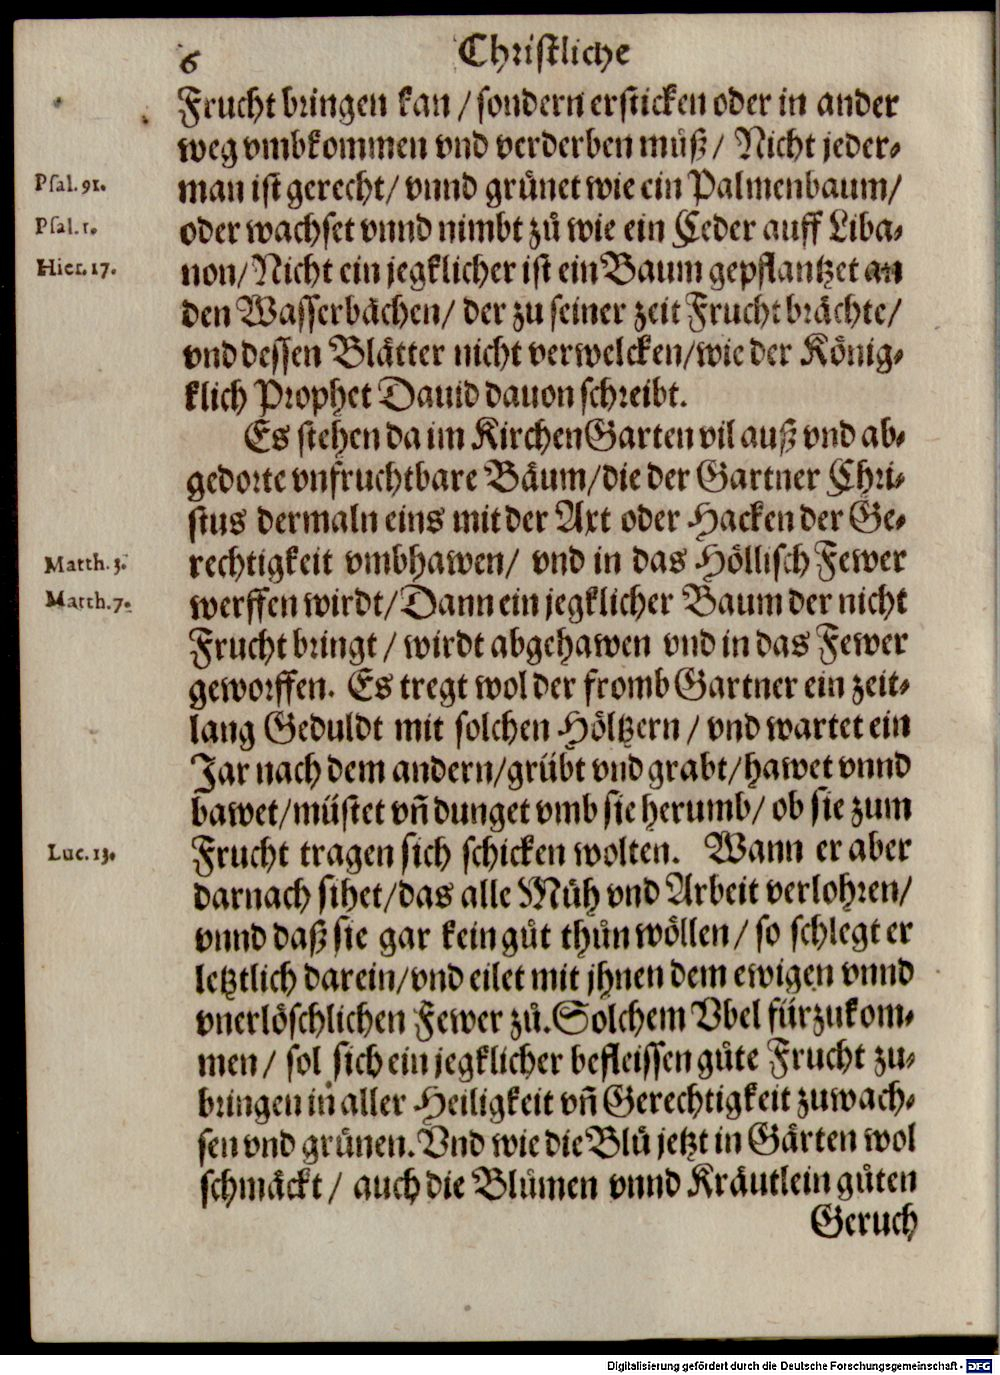 6 Christliche
Frucht bringen kan / sondern ersticken oder in ander
weg vmbkommen vnd verderben můß / Nicht jeder-
Psal. 91. man ist gerecht / vnnd grůnet wie ein Palmenbaum /
Psal. 1. oder wachset vnnd nimbt zů wie ein Ceder auff Liba-
Hier. 17. non / Nicht ein jegklicher ist ein Baum gepflantzet an
den Wasserbächen / der zu seiner zeit Frucht brächte /
vnd dessen Blätter nicht verwelcken / wie der König-
klich Prophet Dauid dauon schreibt.
Es stehen da im KirchenGarten vil auß vnd ab-
gedorte vnfruchtbare Bäum / die der Gartner Chri-
stus dermaln eins mit der Axt oder Hacken der Ge-
Matth. 3. rechtigkeit vmbhawen / vnd in das Höllisch Fewer
Matth. 7. werffen wirdt / Dann ein jegklicher Baum der nicht
Frucht bringt / wirdt abgehawen vnd in das Fewer
geworffen. Es tregt wol der fromb Gartner ein zeit-
lang Geduldt mit solchen Höltzern / vnd wartet ein
Jar nach dem andern / grübt vnd grabt / hawet vnnd
bawet / müstet vñ dunget vmb sie herumb / ob sie zum
Luc. 13. Frucht tragen sich schicken wolten. Wann er aber
darnach sihet / das alle Müh vnd Arbeit verlohren /
vnnd daß sie gar kein gůt thůn wöllen / so schlegt er
letztlich darein / vnd eilet mit jhnen dem ewigen vnnd
vnerlöschlichen Fewer zů. Solchem Vbel fürzukom-
men / sol sich ein jegklicher befleissen gůte Frucht zu-
bringen in aller Heiligkeit vñ Gerechtigkeit zuwach-
sen vnd grůnen. Vnd wie die Blů jetzt in Gärten wol
schmäckt / auch die Blůmen vnnd Kräutlein gůten
Geruch
Digitalisierung gefördert durch die Deutsche Forschungsgemeinschaft - DFG